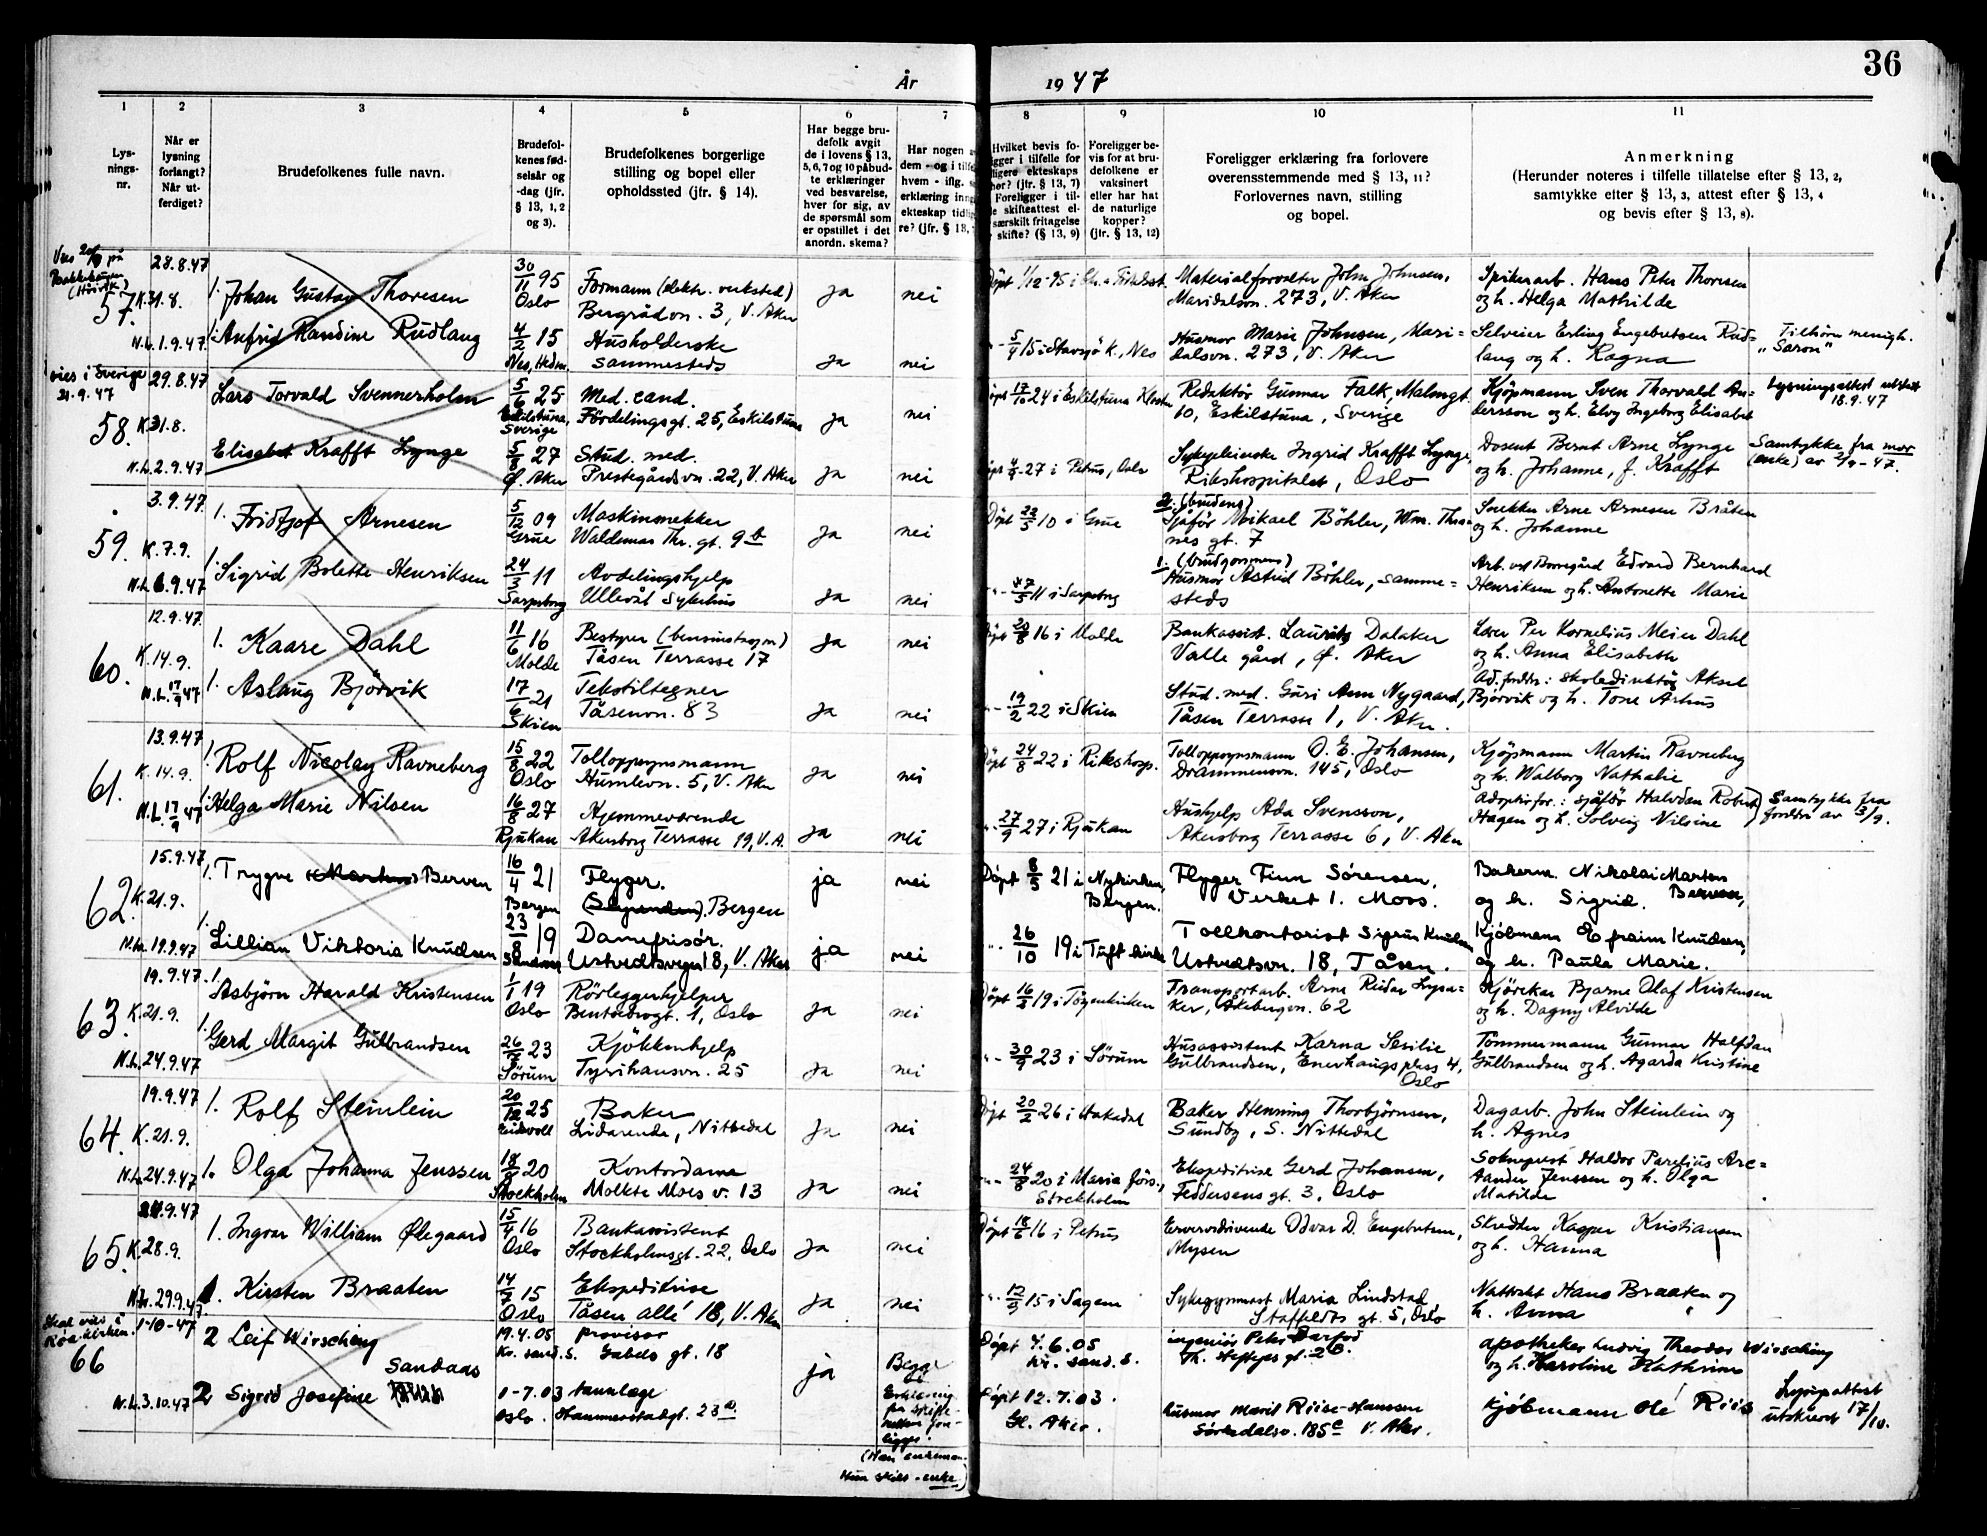 36
År 1947
1 2 3 4 5 6 7 8 9 10 11
Lys-
nings-
nr.
Når er
lysning
forlangt?
Når ut-
ferdiget?
Brudefolkenes fulle navn.
Brudefol-
kenes fød-
selsår og
-dag (jfr.
§ 13, 1, 2
og 3).
Brudefolkenes borgerlige
stilling og bopel eller
opholdssted (jfr. § 14).
Har begge bru-
defolk avgit
de i lovens § 13,
5, 6, 7 og 10 påbud-
te erklæringer
ved besvarelse,
hver for sig, av
de spørsmål som
er opstillet i det
anordn. skema?
Har nogen a
dem - og i tilfe
hvem - iflg. s
erklæring inng
ekteskap tidlig
re? (jfr. § 13,
Hvilket bevis fo-
igger i tilfelle for
ligere ekteskaps
hør? (jfr. § 13, 7)
Foreligger i til-
le skifteattest el-
særskilt fritagelse
skifte? (§ 13, 9)
Foreligger be-
vis for at bru-
defolkene er
vaksinert
eller har hat
de naturlige
kopper?
(jfr. § 13, 12)
Foreligger erklæring fra forlovere
overensstemmende med § 13, 11?
Forlovernes navn, stilling
og bopel.
Anmerkning
(Herunder noteres i tilfelle tillatelse efter § 13, 2,
samtykke efter § 13, 3, attest efter § 13, 4
og bevis efter § 13, 8).
57. 28.8.47 K.31.8. 1. Johan Gustav Thoresen 30/11 95 Oslo Formann (elektr. verksted) Bergrådvn. 3, V. Aker ja nei Döpt 1/12-95 i Materialforvalter John Johnsen, Maridalsvn. 273, V. Aker Spikerarb. Hans Peter Thoresen og h. Helga Mathilde
N.L.1.9.47 1. Anfrid Randine Rudlang 4/2 15 Nes, Hedm. Husholderske sammesteds ja nei 5/4 15 i Stavsjö k., Nes Husmor Marie Johnsen, Mari=dalsvn. 273, V. Aker Selveier Erling Engebretsen Rud=lang og h. Ragna Tilhører menigh. "Saron"
58. vies i Sverige 21.9.47 29.8.47 K.31.8. Lars Torvald Svennerholm 5/6 25 Eskilstuna, Sverige Med. cand. Fördelingsgt. 25, Eskilstuna ja nei 17/10 24 i Eskilstuna Kloster Redaktør Gunnar Falk, Malmgt. 10, Eskilstuna, Sverige Kjøpmann Sven Thorvald An=dersson og h. Elvy Ingeborg Elisabet Lysningsattest utstedt 18.9.47
N.L.2.9.47 Elisabet Krafft Lynge 5/8 27 Ø. Aker Stud. med. Prestegårdsvn. 22, V. Aker ja nei 27 i Petrus, Oslo Sykepleierske Ingrid Krafft Lynge, Rikshospitalet, Oslo Dosent Bernt Arne Lynge og h. Johanne, f. Krafft Samtykke fra mor (enke) av 2/9-47.
59. 3.9.47 K.7.9. 1. Fridtjof Arnesen 5/12 09 Grue Maskinsnekker Waldemar Thr. gt. 9b ja nei Döpt 10 i Grue 2. (brudens) Sjåför Mikael Böhler, Wm. Thra=nes gt. 7 Snekker Arne Arnesen Bråten og h. Johanne
N.L.6.9.47 1. Sigrid Bolette Henriksen 24/3 11 Sarpsborg Avdelingshjelp Ullevål Sykehus ja nei 11 i Sarpsborg 1. (brudgommens) Husmor Astrid Böhler, samme=steds Arb. ved Borregård Edvard Bernhard Henriksen og h. Antonette Marie
60. 12.9.47 K.14.9. 1. Kaare Dahl 11/6 16 Molde Bestyrer (bensinstasjon) Tåsen Terrasse 17 ja nei 20/8 16 i Molde Bankassist. Laurits Dalaker Valle gård, Ø. Aker Lærer Per Kornelius Meier Dahl og h. Anna Elisabeth
N.L.17/9 47 1. Aslaug Bjørvik 17/6 21 Skien Tekstiltegner Tåsenvn. 83 ja nei 19/2 22 i Skien Stud. med. Guri Ann Nygaard, Tåsen Terrasse 1, V. Aker. Ad.foreldre: skoledirektör Aksel Bjørvik og h. Tone Århus
61. 13.9.47 K.14.9. 1. Rolf Nicolay Ravneberg 15/8 22 Oslo Tolloppsynsmann Humlevn. 5, V. Aker ja nei Döpt 24/8 22 i Rikshosp. Tolloppsynsmann O. E. Johansen, Drammensvn. 145, Oslo Kjøpmann Martin Ravneberg og h. Walborg Nathalie
N.L.17/9 47 1. Helga Marie Nilsen 16/8 27 Rjukan Hjemmeværende Akersborg Terrasse 19, V.A. ja nei 27/9 27 i Rjukan Hushjelp Ada Svensson, Akersborg Terrasse 6, V. Aker Adoptivfor.: sjåför Halvdan Robert Hagen og h. Solveig Nilsine Samtykke fra foreldre av 3/9.
62. 15.9.47 K.21.9. 1. Trygve (Martens) Berven 16/4 21 Bergen Flyger. Bergen ja nei Döpt 8/5 21 i Nykirken, Bergen. Flyger Finn Sörensen, Verket 1. Moss. Bakerm. Nikolai Martens Berven, og h. Sigrid.
N.L.19.9.47 1. Lillian Viktoria Knudsen 23/8 19 Damefrisør. Ustvedtsvegen 18, V. Aker ja nei 26/10 19 i Tuft kirke Tollkontorist Sigrun Knudsen Ustvedtsvn. 18, Tåsen. Kjöbmann Efraim Knudsen, og h. Paula Marie.
63. 19.9.47 K.21.9. 1. Asbjörn Harald Kristensen 1/1 19 Oslo Rörleggerhjelper Bentsebrogt. 1, Oslo ja nei Döpt 19 i Töyenkirken Transportarb. Arne Reidar Lysa=ker, Åkebergvn. 62 Kjørekar Bjarne Olaf Kristensen og h. Dagny Alvilde
N.L.24.9.47 1. Gerd Margit Gulbrandsen 23 Sörum Kjökkenhjelp Tyrihansvn. 25 ja nei 30/9 23 i Sörum Husassistent Karna Sesilie Gulbrandsen, Enerhaugsplass 4, Oslo Tömmermann Gunnar Halfdan Gulbrandsen og h. Agarda Kristine
64. 19.9.47 K.21.9. 1. Rolf Steinlein 20/12 25 Eidsvoll Baker Lidarende, Nittedal ja nei Döpt 20/2 26 i Hakadal Baker Henning Thorbjörnsen, Sundby, S. Nittedal Dagarb. John Steinlein og h. Agnes
N.L.24.9.47 1. Olga Johanna Jenssen 20 Stockholm Kontordame Moltke Moes v. 13 ja nei 24/8 20 i Maria förs., Stockholm Ekspeditrise Gerd Johansen, Feddersens gt. 3, Oslo Sokneprest Haldor Parelius Are=tander Jenssen og h. Olga Matilde
65. 9.47 K.28.9. 1. Ingvar William Ødegaard 15/4 16 Oslo Bankassistent Stockholmsgt. 22, Oslo ja nei Döpt 18/6 16 i Petrus Ervervsdrivende Odvar D. Engebretsen, Mysen Skredder Kasper Kristiansen og h. Hanna
N.L.29.9.47 1. Kirsten Braaten 14/7 15 Oslo Ekspeditrise Tåsen allé 18, V. Aker ja nei 12/9 15 i Sagene Sykegymnast Maria Lindstad Staffeldts gt. 5, Oslo Nattvakt Hans Braaten og h. Anna
66 Skal vies i Röa kirken. 1-10-47 2 Leif Wirsching 19.4.05 Kr. sand. S. provisor Gabels gt. 18 ja Begge Döpt 4.6.05 Kr. sand. S. ingeniör Peter Th. Heftyes gt. 2B. apotheker Ludvig Theodor Wirsching og h. Karoline Kathrine
N.L.3.10.47 2 Sigrid Josefine Sandaas 1-7.03 Oslo. tannlæge Hammerstadgt. 23a Erklæring Döpt 12.7.03. V. Aker. husmor Marit Riise-Hanssen Sörkedalsv. 185c V. Aker. kjöbmann Ole Riis Lysn.attest utskrevet 17/10.
(Han enkeman.
Hun skilt - enke)